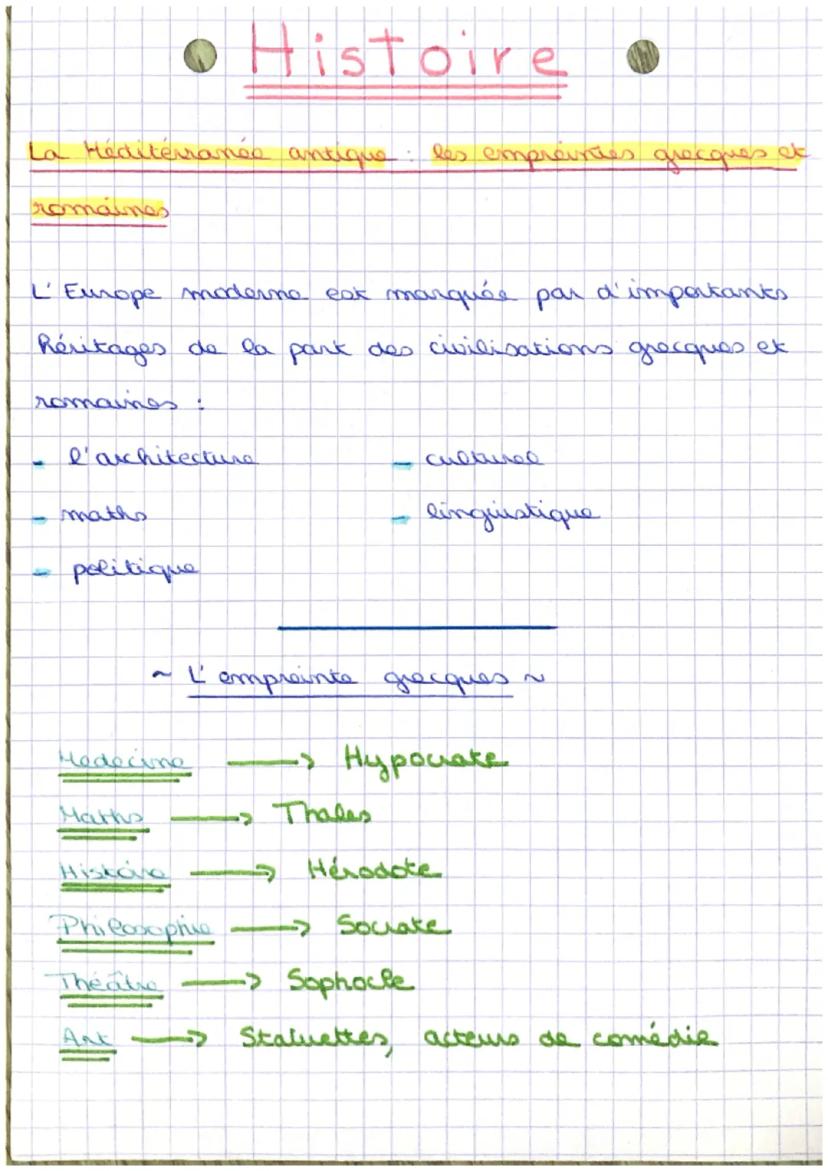 Histoire
La Méditérranée antique : les empreintes grecques et
romaines
L'Europe moderne est marquée par d'importants
héritages de la part des civilisations grecques et
romaines :
- l'architecture - culturel
- maths - linguistique
- politique
~ L'empreinte grecques ~
Medecine → Hypocrate
Maths → Thales
Histoire → Hérodote
Philosophie → Socrate
Théâtre → Sophocle
Art → Statuettes, acteurs de comédie